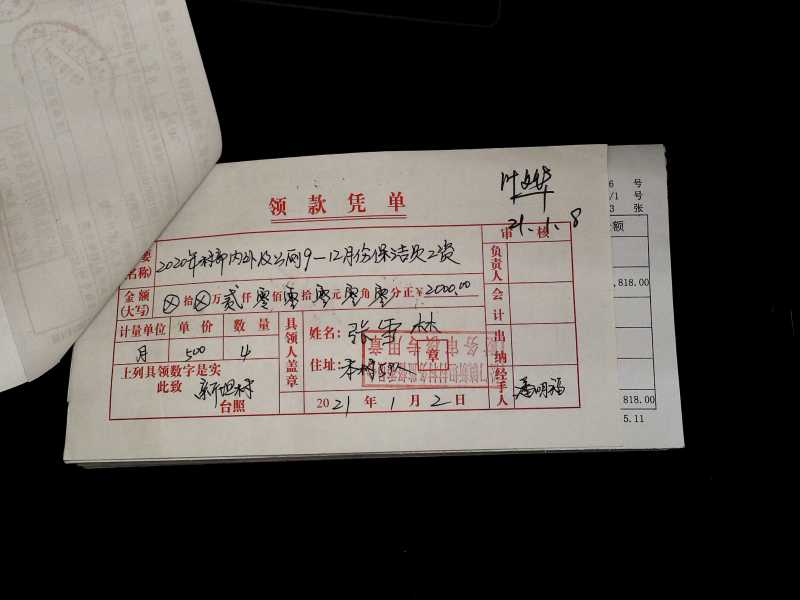 领款凭单
21.1.8
审核
要
名称)
2020年村部内外及公厕9—12月份保洁员工资
负责人
金额
(大写)
⊗拾⊗万贰仟零佰零拾零元零角零分正¥2000.00
会计
计量单位 单价 数量
月 500 4
具领人盖章
姓名:张 林
住址:本村
章
财务审核专用章
出纳
上列具领数字是实
此致 新坦村
台照
2021年1月2日
经手人
潘明福
6 号
/1 号
3 张
额
,818.00
818.00
5.11